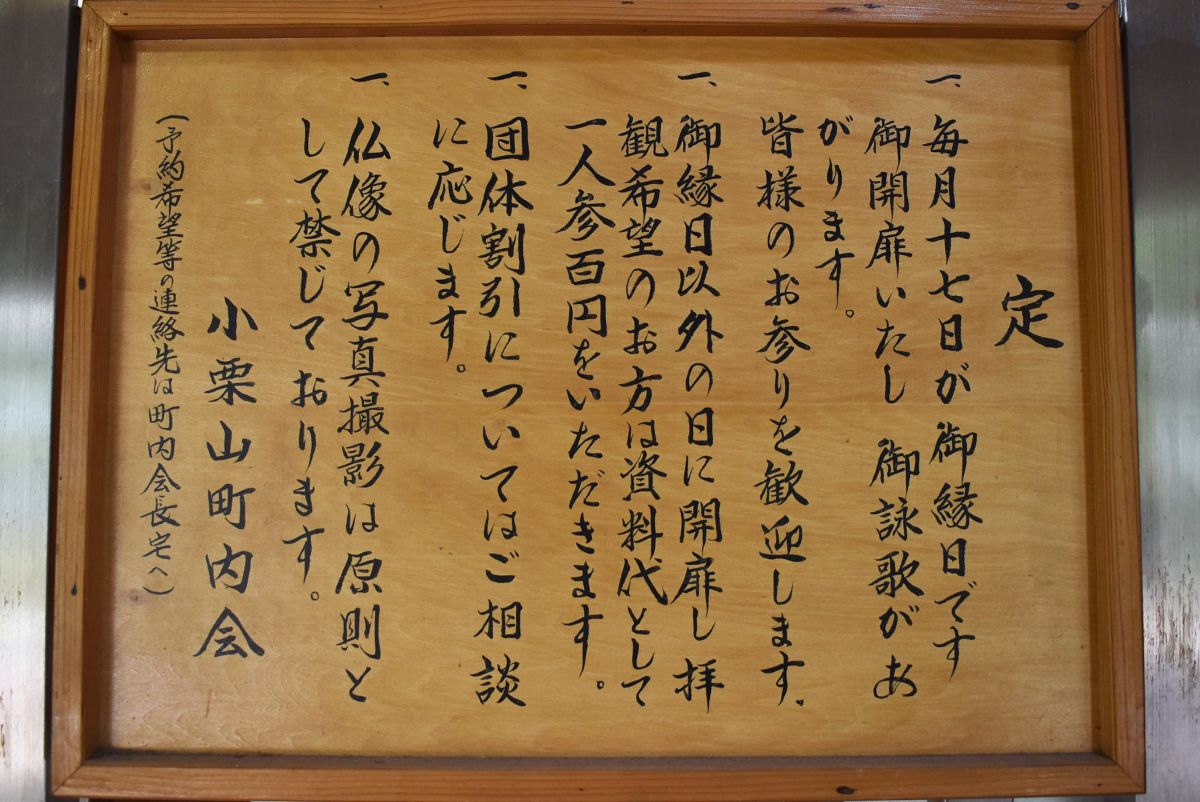 定
一、毎月十七日が 御縁日です
御開扉いたし 御詠歌があ
がります。
皆様のお参りを歓迎します、
一、御縁日以外の日に開扉し拝
観希望のお方は資料代として
一人参百円をいただきます。
一、団体割引についてはご相談
に応じます。
一、仏像の写真撮影は原則と
して禁じております。
小栗山町内会
(予約希望等の連絡先は町内会長宅へ)